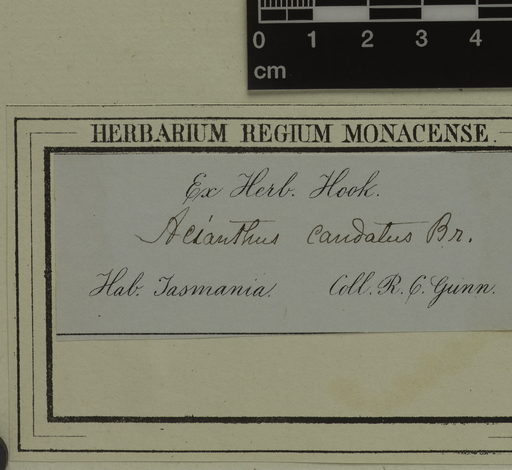 0 1 2 3 4
cm
HERBARIUM REGIUM MONACENSE.
Ex Herb. Hook.
Acianthus caudatus Br.
Hab. Tasmania. Coll. R. C. Gunn.